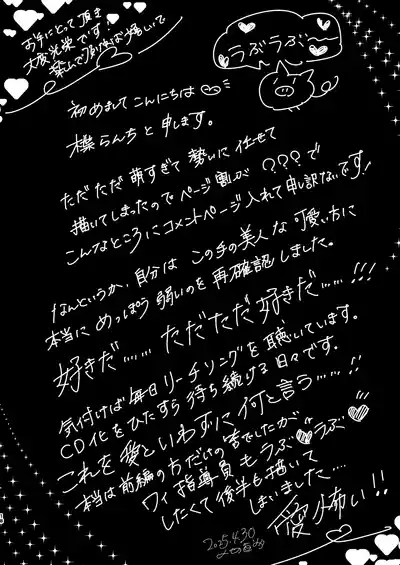 お手にとって頂き
大変光栄です!
楽しんで頂ければ幸いで
うぶうぶ
初めましてこんにちは
樸らんちと申します。
ただただ萌すぎて勢いに任せて
描いてしまったのでページ割が???で
こんなところにコメントページ入れて申し訳ないです!
なんというか、自分はこの手の美人な可愛い方に
本当にめっぽう弱いのを再確認しました。
好きだ……ただただ好きだ……!!!
気付けば毎日リーチソングを聴いています。
CD化をひたすら待ち続ける日々です。
これを愛といわずに何と言う……!!
本当は前編の方だけの筈でしたが
ワイ指導員もうぶうぶ
したくて後半も描いて
しまいました……
愛怖い!!
2025.4.30